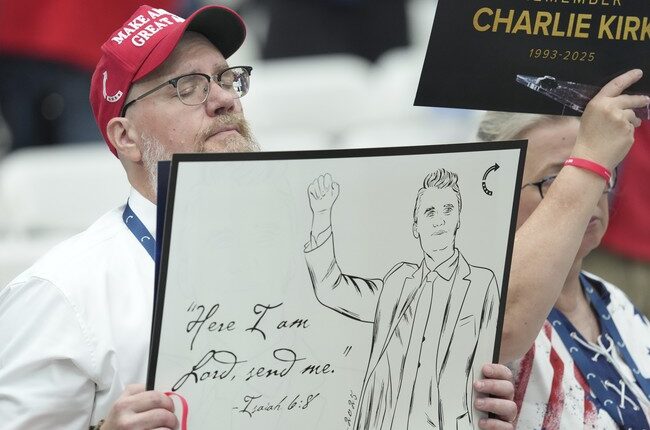 MAKE AM
GREAT A
REMEMBER
CHARLIE KIRK
1993-2025
"Here I am
Lord, send me."
-Isaiah 6:8
2025